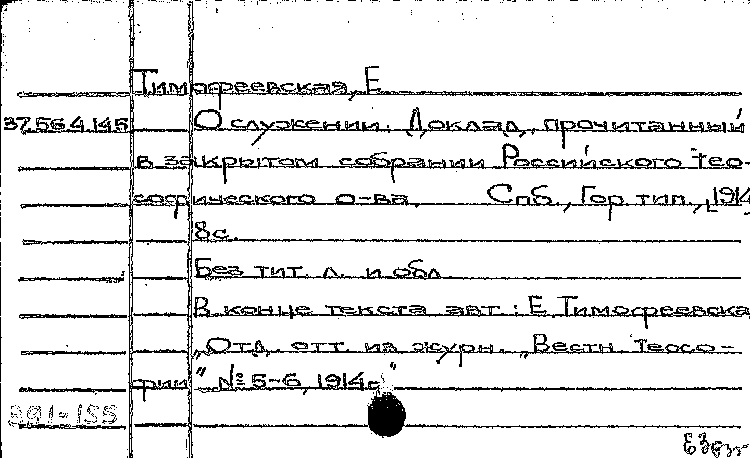 Тимофеевская, Е.
37.56.4.145 О служении. Доклад, прочитанный
в закрытом собрании Российского тео-
софического о-ва. Спб., Гор. тип., [1914
8с.
Без тит. л. и обл.
В конце текста авт.: Е. Тимофеевска
„Отд. отт. из журн. „Вестн. теосо-
фии" № 5-6, 1914г."
391-155